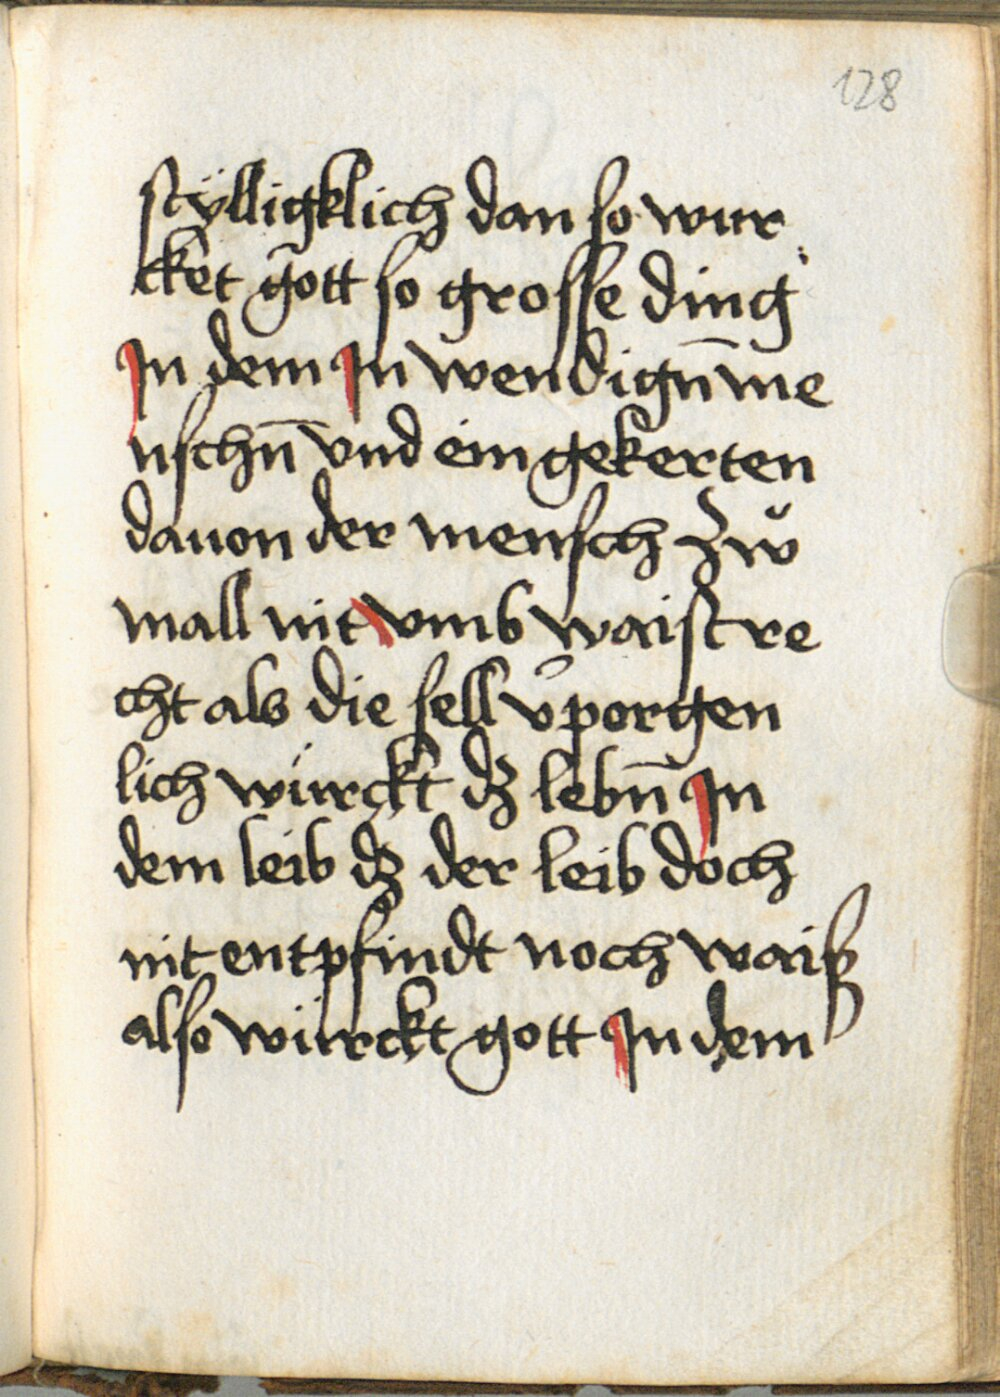 128
stÿlligklich dan so wur
cket gott so grosse ding
In dem In wendign̄ me
nschn̄ vnd ein gekerten
dauon der mensch zw̆
mall nit vmb waist re
cht als die sell v̾porgen
lich würckt dz lebn̄ In
dem leib dz der leib doch
nit entpfindt noch waiß
also würckt gott In dem